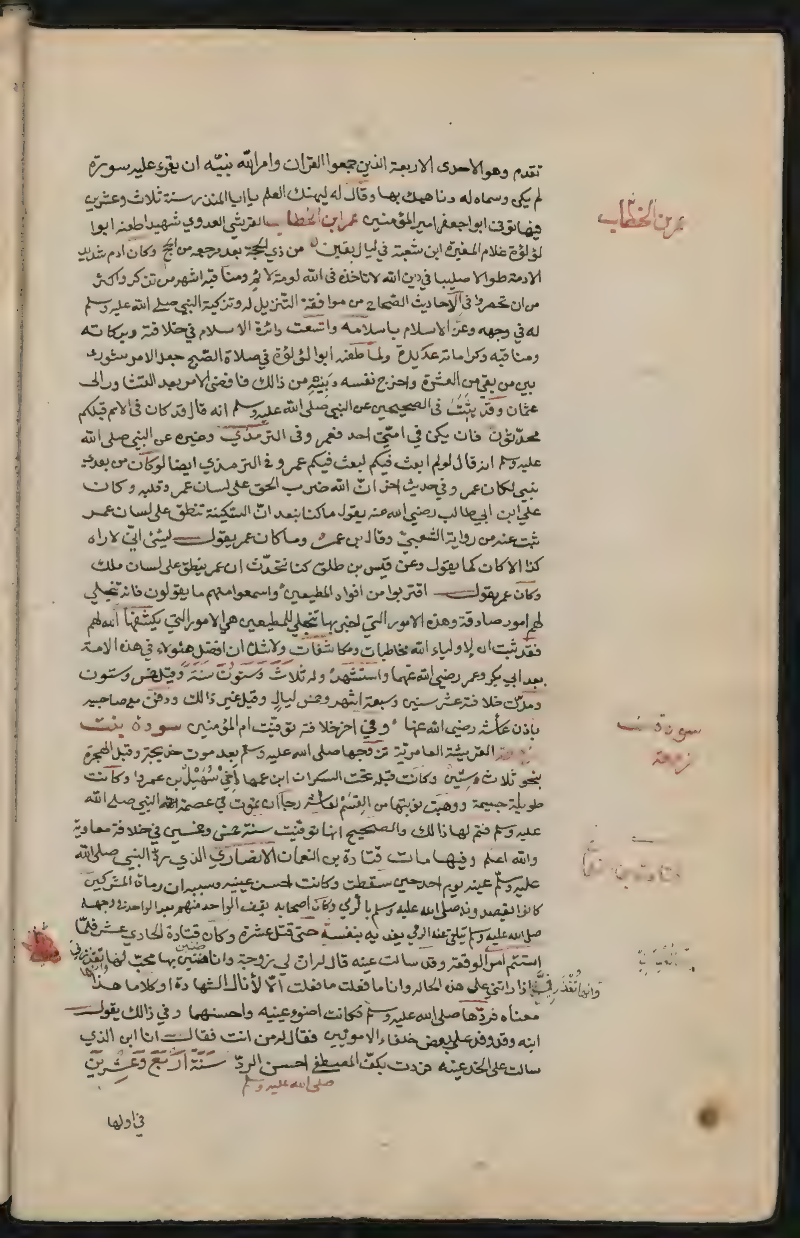 تقدم وهو الاحدى الاربعة الذين جمعوا القران وامر الله بنيه ان يقرئ عليه سورة
لم يكن وسماه له وناهيك بها وقال له ليهنك العلم يا ابا المنذر سنة ثلاث وعشرين
فيها توفى ابو جعفر امير المؤمنين عمر ابن الخطاب القرشي العدوي شهيدا طعنه ابوا
لؤلؤة غلام المغيرة ابن شعبة في ليال بقين من ذي الحجة بعد مرجعه من الحج وكان ادم شديد
الادمة طوالا صليبا في دين الله لا تاخذه في الله لومة لائم ومناقبه اشهر من تذكر واكثر
من ان تحصر في الاحاديث الصحاح من موافقة التنزيل له وتزكية النبي صلى الله عليه وسلم
له في وجهه وعز الاسلام باسلامه واتسعت دائرة الاسلام في خلافته وبركاته
ومناقبه وكراماته عديدة ولما طعنه ابوا لؤلؤة في صلاة الصبح جعل الامر شورى
بين من بقي من العشرة واخرج نفسه وبنيه من ذالك فافضى الامر بعد التشاور الى
عثمان وقد يثبت فى الصحيحين عن النبي صلى الله عليه وسلم انه قال قد كان في الامم قبلكم
محدثون فان يكن في امتي احد فعمر وفى الترمذي وغيره عن النبي صلى الله
عليه وسلم انه قال لو لم ابعث فيكم لبعث فيكم عمر وفى الترمذي ايضا لو كان من بعدي
نبي لكان عمر وفي حديث اخر ان الله ضرب الحق على لسان عمر وقلبه وكان
علي ابن ابي طالب رضي الله عنه يقول ما كنا نبعد ان السكينة تنطق على لسان عمر
ثبت عنه من رواية الشعبي وقال بن عمر وما كان عمر يقول لشئ انى لاراه
كذا الا كان كما يقول وعن قيس بن طلق كنا نتحدث ان عمر ينطق على لسان ملك
وكان عمر يقول اقتربوا من افواه المطيعين واسمعوا منهم ما يقولون فانه تتجلى
لهم امور صادقة وهذه الامور التي اخبر بها تتجلى للمطيعين هي الامور التي يكشفها الله لهم
فقد ثبت ان لاولياء الله مخاطبات ومكاشفات ولا شك ان افضل هئولاء في هذه الامة
بعد ابي بكر وعمر رضي الله عنهما واستشهد وله ثلاث وستون سنة وقيل خمس وستون
ومدت خلافته عشر سنين وسبعة اشهر وخمس ليال وقيل غير ذالك ودفن مع صاحبيه
باذن عائشة رضي الله عنها وفي اخر خلافته توفيت ام المؤمنين سودة بنت
زمعة القريشية العامرية تزوجها صلى الله عليه وسلم بعد موت خديجة وقبل الهجرة
بنحو ثلاث سنين وكانت قبله تحت السكران ابن عمها اخي سهيل بن عمرو وكانت
طويلة جسيمة ووهبت نوبتها من القسم لعائشة رجاء ان تموت في عصمة النبي صلى الله
عليه وسلم فتم لها ذالك والصحيح انها توفيت سنة خمس وخمسين في خلافة معاوية
والله اعلم وفيها مات قتادة بن النعمان الانصاري الذي رد النبي صلى الله
عليه وسلم عينه يوم احد حين سقطت وكانت احسن عينيه وسببه ان رماة المشركين
كانوا لقصدونه صلى الله عليه وسلم بالرمي وكان اصحابه يقيف الواحد منهم بعد الواحد في وجهه
صلى الله عليه وسلم يتلقى عنه الرمي يفديه بنفسه حتى قتل عشرة وكان قتادة الحادي عشر فلما
استتم امر الوقعة وقد سالت عينه قال له ان لى زوجة وانا ضنين بها محب لها
وانها تقذرني اذا راتني على هذه الحالة وانا ما فعلت ما فعلت الا لأنال الشهادة او كلاما هذا
معناه فردها صلى الله عليه وسلم فكانت اضوء عينيه واحسنهما وفي ذالك يقول
ابنه وقد وفد على بعض خلفاء الامويين فقال له من انت فقال انا ابن الذي
سالت على الخد عينه فردت بكف المصطفى احسن الرد سنة اربع وعشرين
صلى الله عليه وسلم
في اولها
عمر بن الخطاب
سودة بنت
زمعة
قتادة بن النعمان